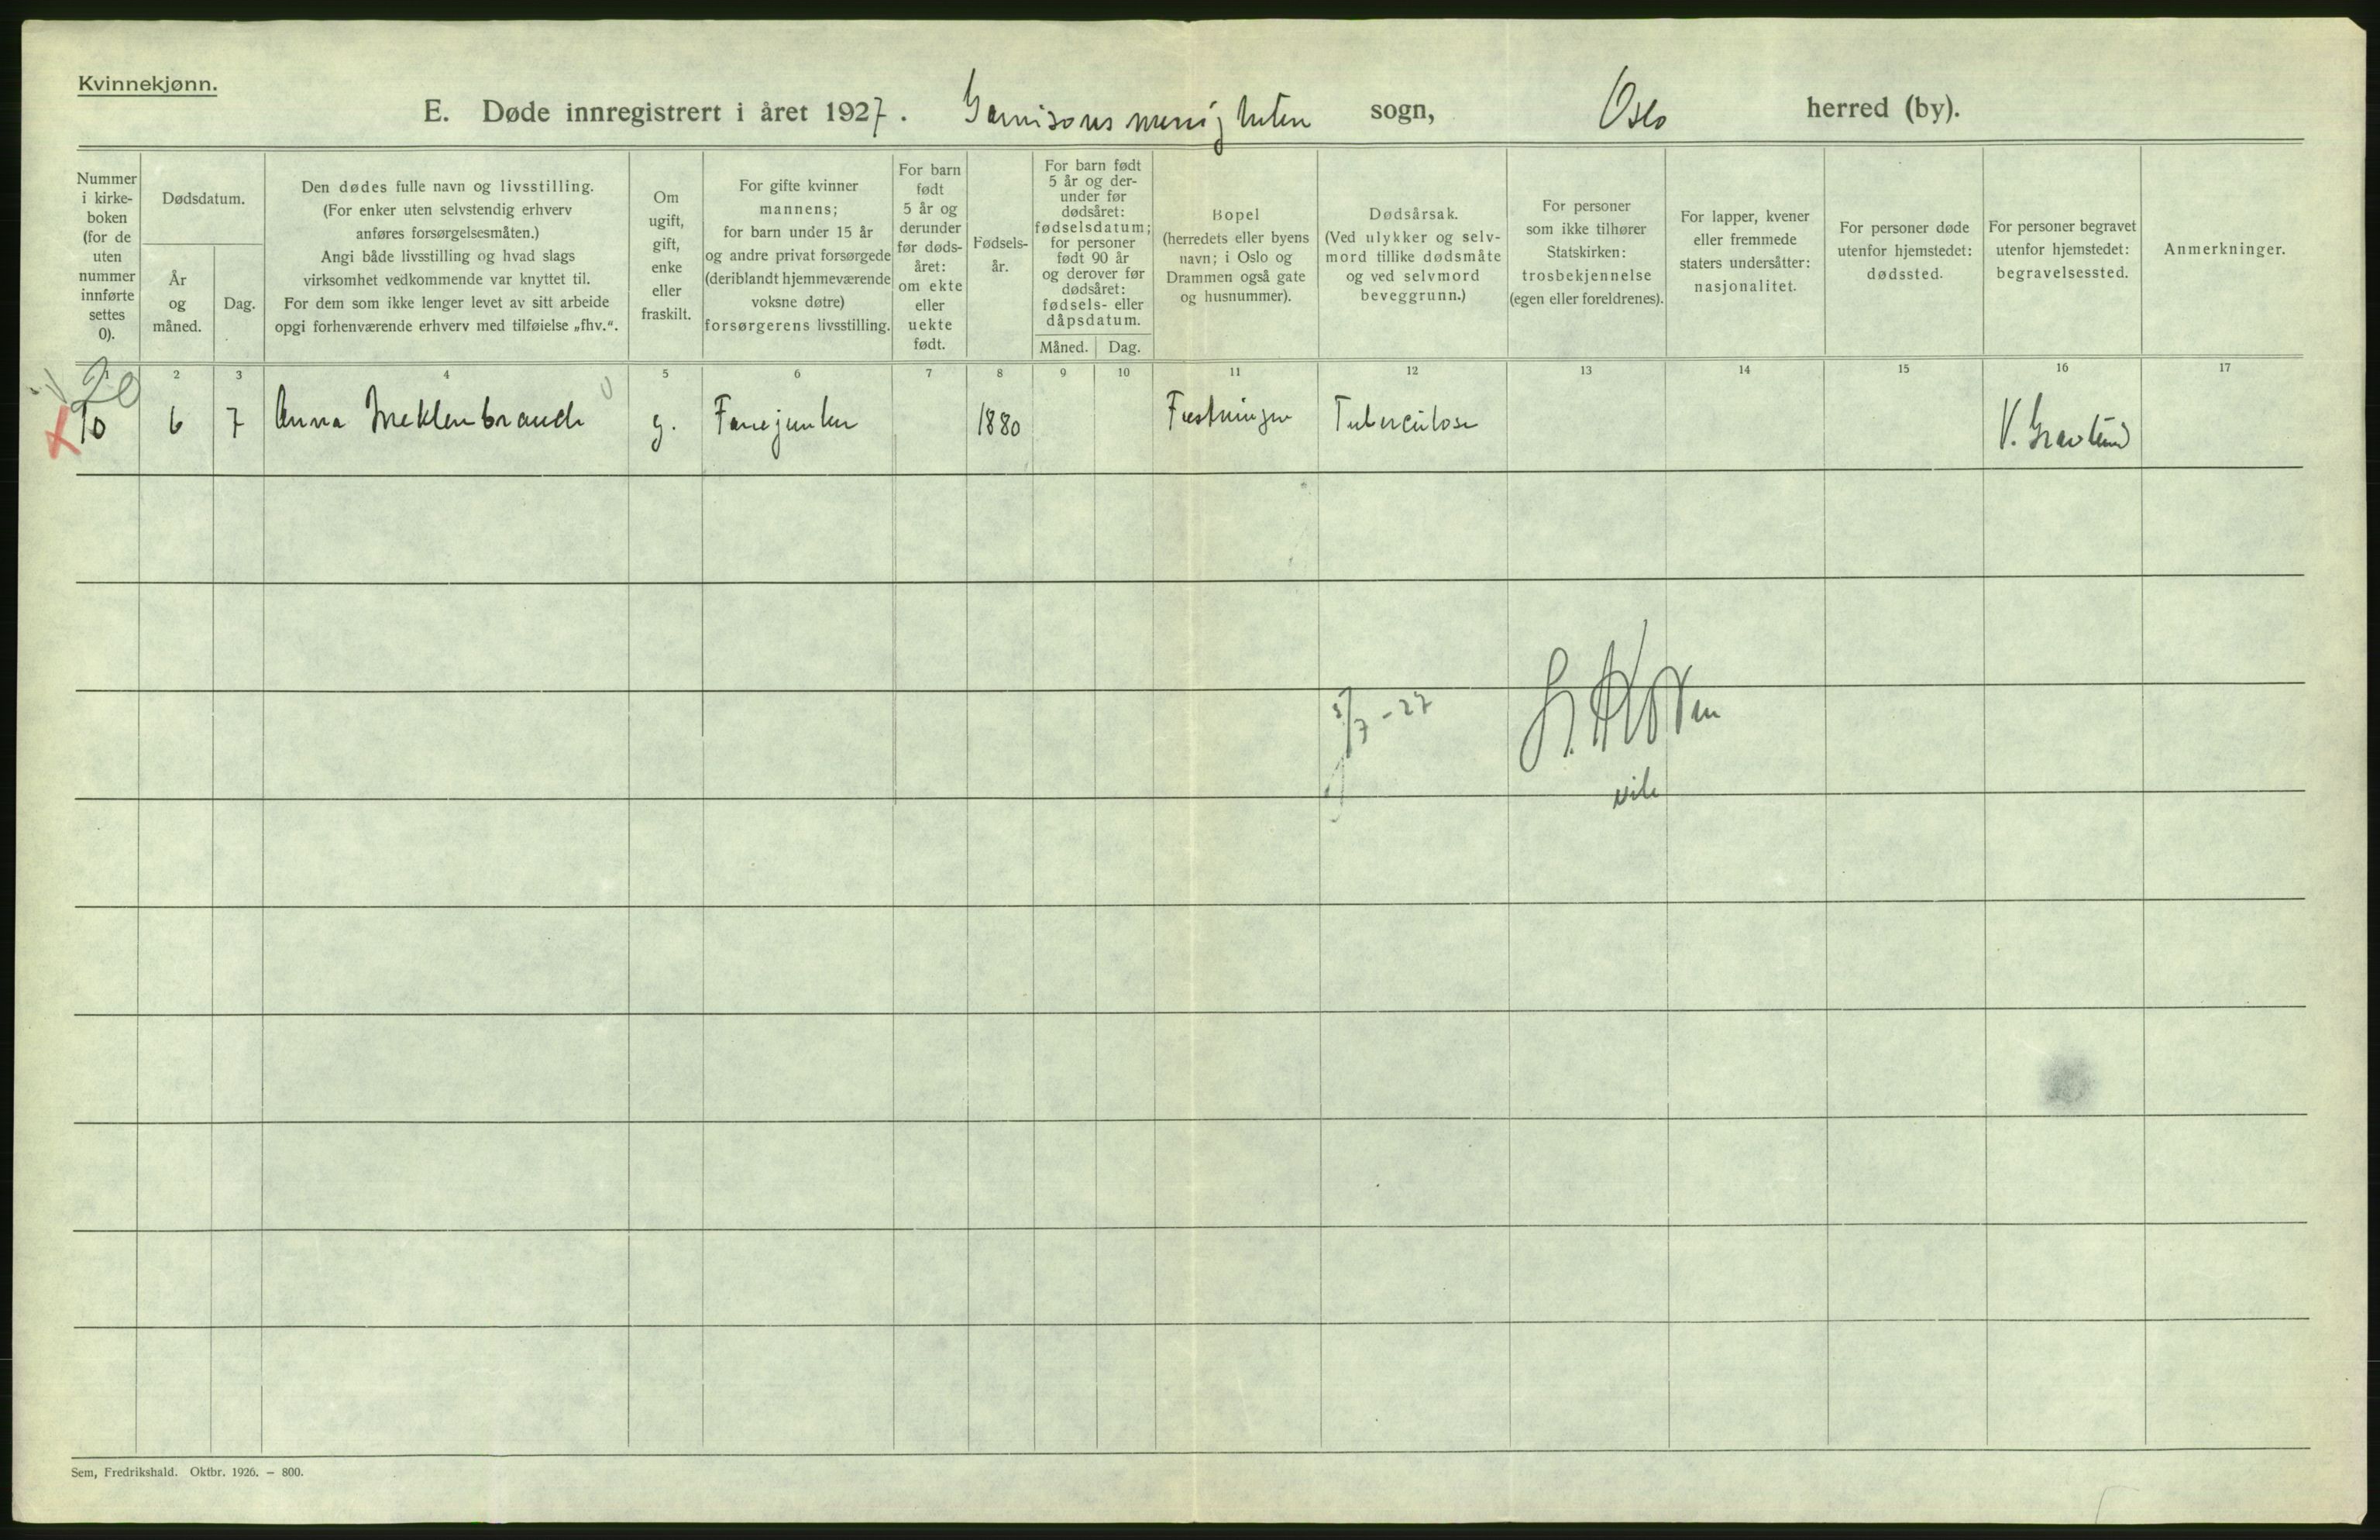 Kvinnekjønn.
E. Døde innregistrert i året 1927. Garnisonsmenigheten sogn, Oslo herred (by).
Nummer
i kirke-
boken
(for de
uten
nummer
innførte
settes
0).
Dødsdatum.
År
og
måned.
Dag.
Den dødes fulle navn og livsstilling.
(For enker uten selvstendig erhverv
anføres forsørgelsesmåten.)
Angi både livsstilling og hvad slags
virksomhet vedkommende var knyttet til.
For dem som ikke lenger levet av sitt arbeide
opgi forhenværende erhverv med tilføielse „fhv.“.
Om
ugift,
gift,
enke
eller
fraskilt.
For gifte kvinner
mannens;
for barn under 15 år
og andre privat forsørgede
(deriblandt hjemmeværende
voksne døtre)
forsørgerens livsstilling.
For barn
født
5 år og
derunder
før døds-
året:
om ekte
eller
uekte
født.
Fødsels-
år.
For barn født
5 år og der-
under før
dødsåret:
fødselsdatum;
for personer
født 90 år
og derover før
dødsåret:
fødsels- eller
dåpsdatum.
Måned. Dag.
Bopel
(herredets eller byens
navn; i Oslo og
Drammen også gate
og husnummer).
Dødsårsak.
(Ved ulykker og selv-
mord tillike dødsmåte
og ved selvmord
beveggrunn.)
For personer
som ikke tilhører
Statskirken:
trosbekjennelse
(egen eller foreldrenes).
For lapper, kvener
eller fremmede
staters undersåtter:
nasjonalitet.
For personer døde
utenfor hjemstedet:
dødssted.
For personer begravet
utenfor hjemstedet:
begravelsessted.
Anmerkninger.
1 2 3 4 5 6 7 8 9 10 11 12 13 14 15 16 17
20
10 6 7 Anna Meklenbrauch g. Fanejunker 1880 Festningen Tuberculose V. Gravlund
5/7 - 27
Sem, Fredrikshald. Oktbr. 1926. – 800.